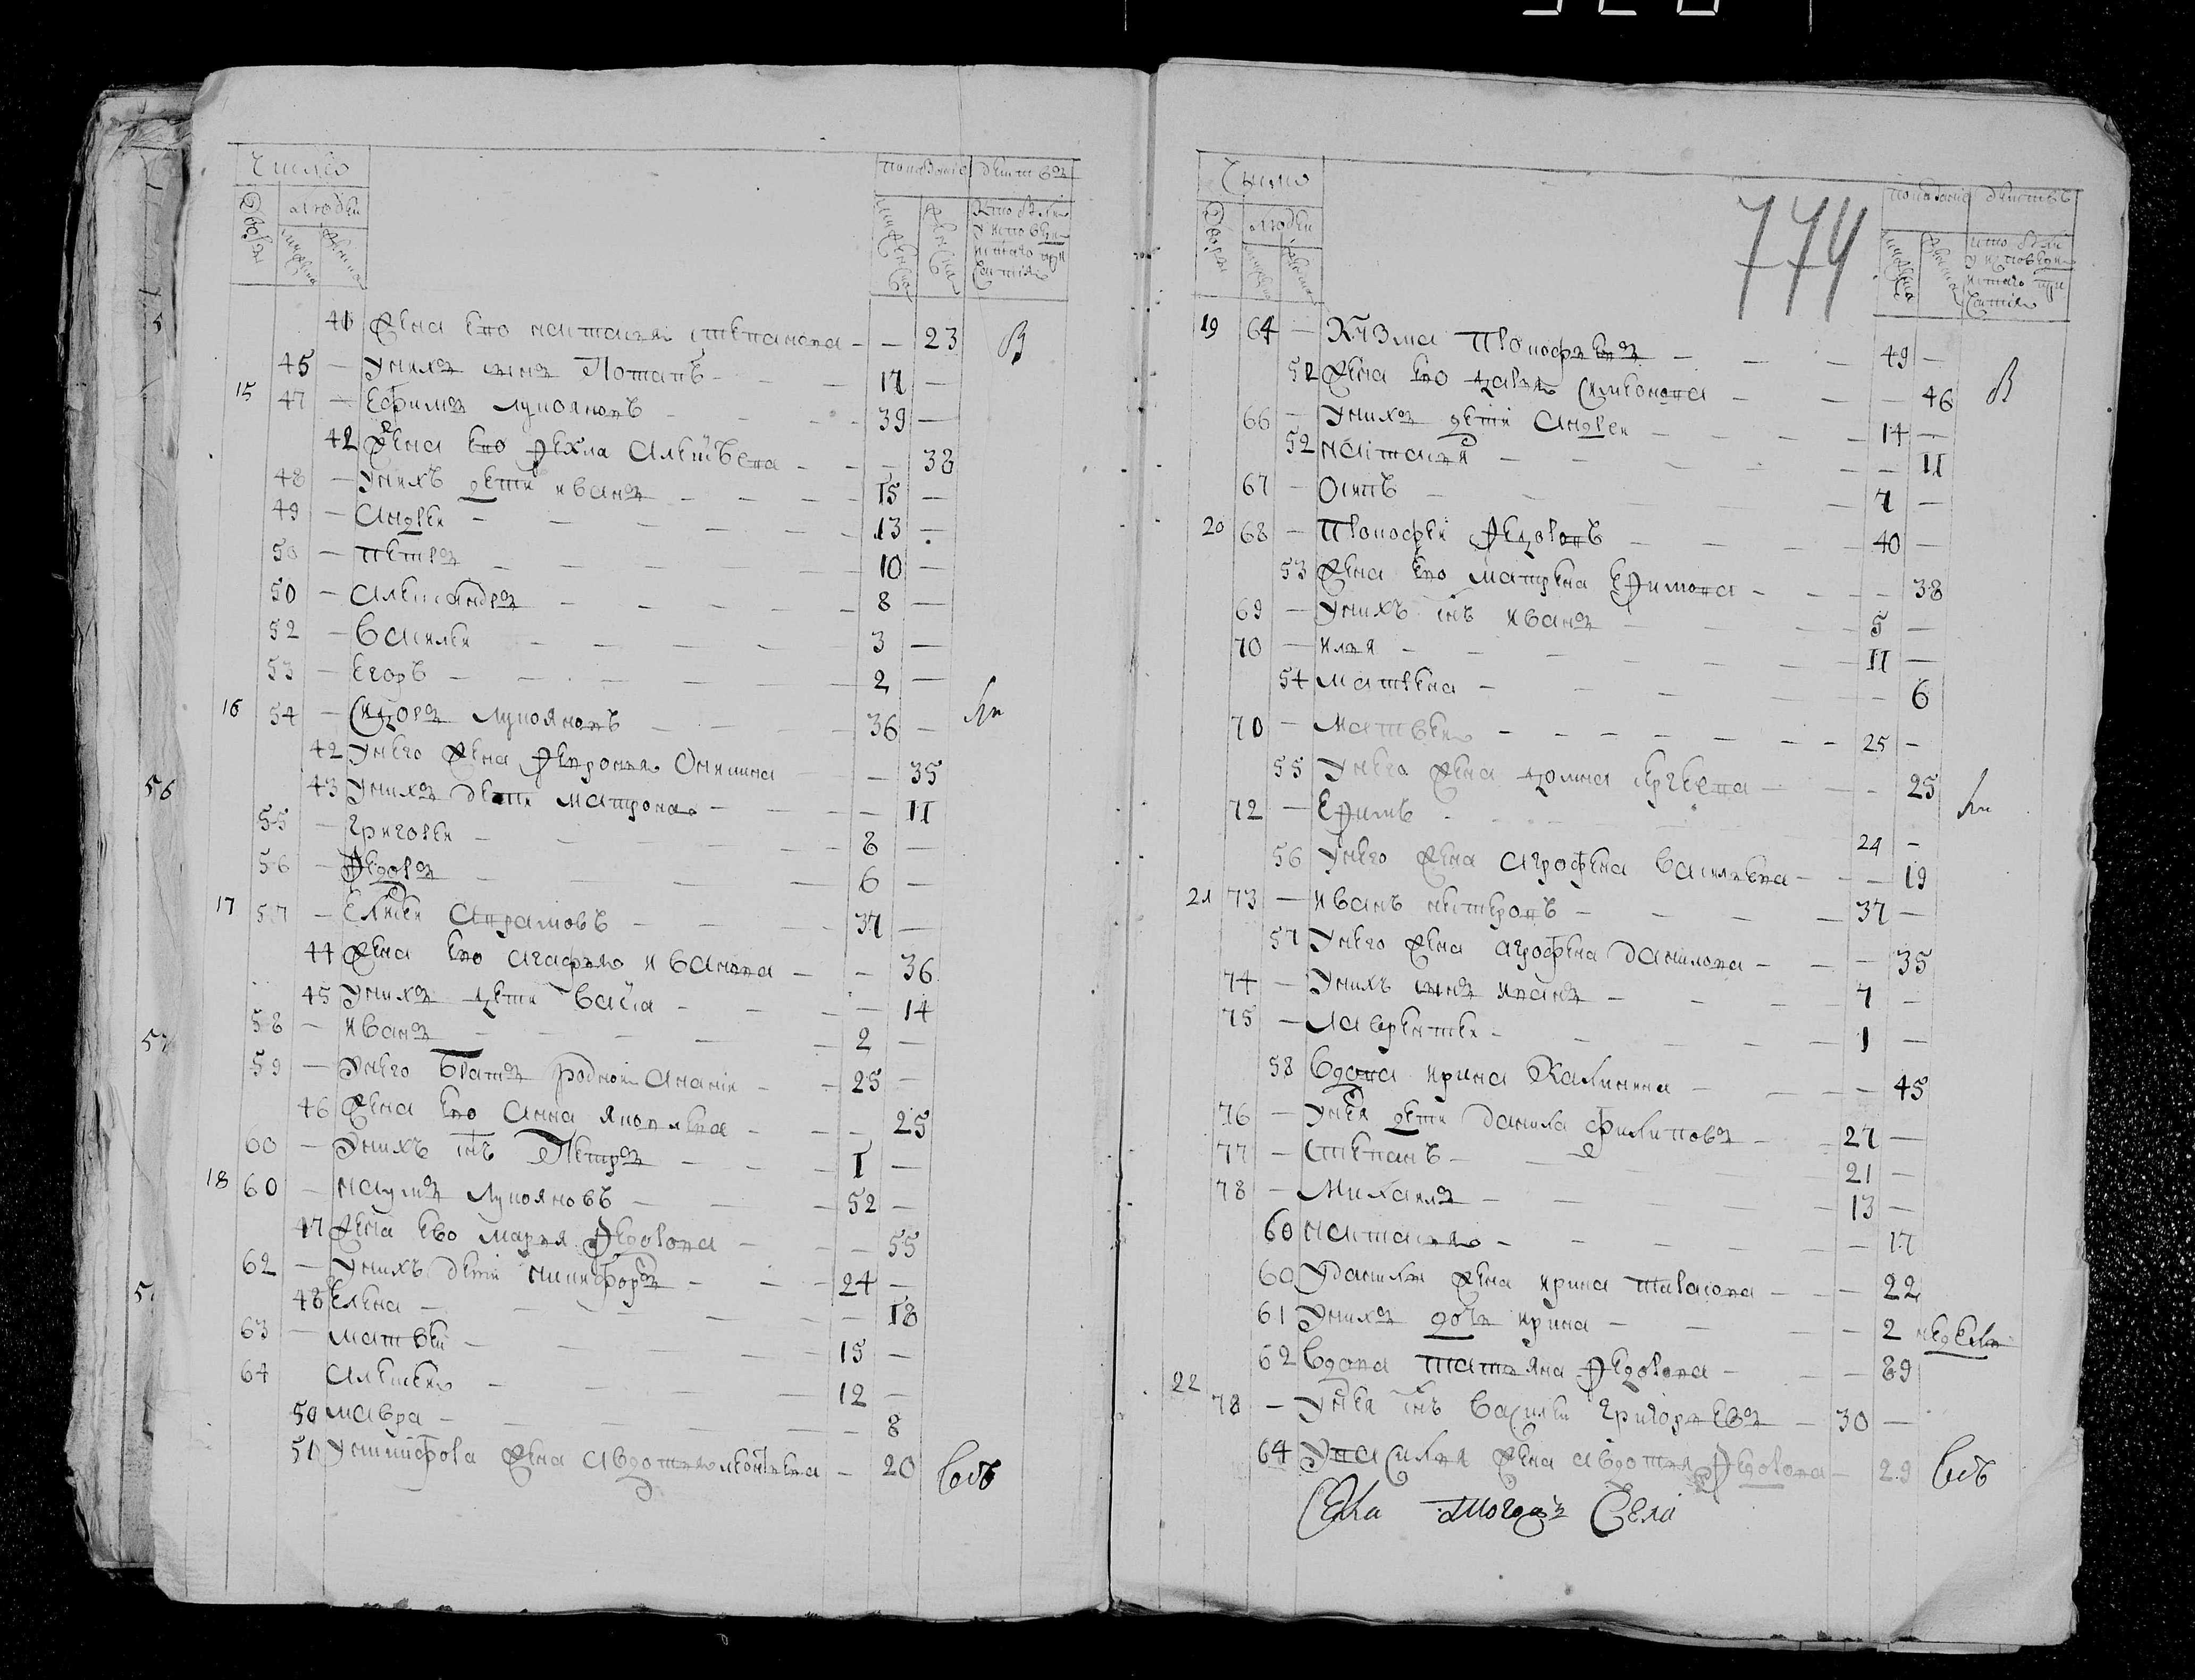 Число
Дворъ
людей
мужеска
женска
показанiе действъ
мужеска
женска
40 Жена ево наталья степанова — — 23 В
45 — Унихъ сынъ Потапъ — 17 —
15 47 — Ефимъ лукояновъ — 39 —
42 Жена ево Фекла Алексѣева — — 38
48 — Унихъ дети иванъ — 15 —
49 — Андреи — 13 —
50 — петръ — 10 —
50 — Александръ — 8 —
52 — Василеи — 3 —
53 — Егоръ — 2 —
16 54 — Сидоръ лукояновъ — 36 —
42 Унего жена Февронья Оникина — 35
43 Унихъ дети матрона — — 11
55 — Григореи — 8 —
56 — Федоръ — 6 —
17 57 — Елисеи Аврамовъ — 37 —
44 Жена ево агафья иванова — — 36
45 Унихъ дети васса — — 14
58 — иванъ — 2 —
59 — Унего братъ родной Ананiи — 25 —
46 Жена ево Анна Яковлева — — 25
60 — Унихъ снъ Петръ — 1 —
18 60 — наумъ лукояновъ — 52 —
47 Жена ево марья Федорова — — 55
62 — Унихъ дети никифоръ — 24 —
48 Елена — — 18
63 — матвеи — 15 —
64 Алексеи — 12 —
50 мавра — — 8
51 Уникифора жена авдотья леонтьева — 20
774
Число
Дворъ
людей
мужеска
женска
показанiе действъ
мужеска
женска
19 64 — Кузма Прокофьевъ — 49 —
51 Жена ево дарья Симонова — — 46 В
66 — Унихъ дети Андреи — 14 —
52 наталья — — 11
67 — Осипъ — 7 —
20 68 — Прокофеи Федоровъ — 40 —
53 Жена ево матрена Ефимова — — 38
69 — Унихъ снъ иванъ — 5 —
70 — илья — 11 —
54 матрена — — 6
70 — матвеи — 25 —
55 Унего жена домна сергеева — — 25
72 — Ефимъ — 24 —
56 Унего жена агрофена василева — — 19
21 73 — иванъ нестеровъ — 37 —
57 Унего жена агрофена данилова — — 35
74 — Унихъ сынъ иванъ — 7 —
75 — лаврентеи — 1 —
58 вдова ирина Калинина — — 45
76 — Унея дети данила филиповъ — 27 —
77 — степанъ — 21 —
78 — михаилъ — 13 —
60 наталья — — 17
60 Уданилы жена ирина тарасова — — 22
61 Унихъ дочь ирина — — 2 недели
62 вдова татьяна Федорова — — 89
22 78 — Унея снъ василеи григорьевъ — 30 —
64 Увасилья жена авдотья Федорова — 29